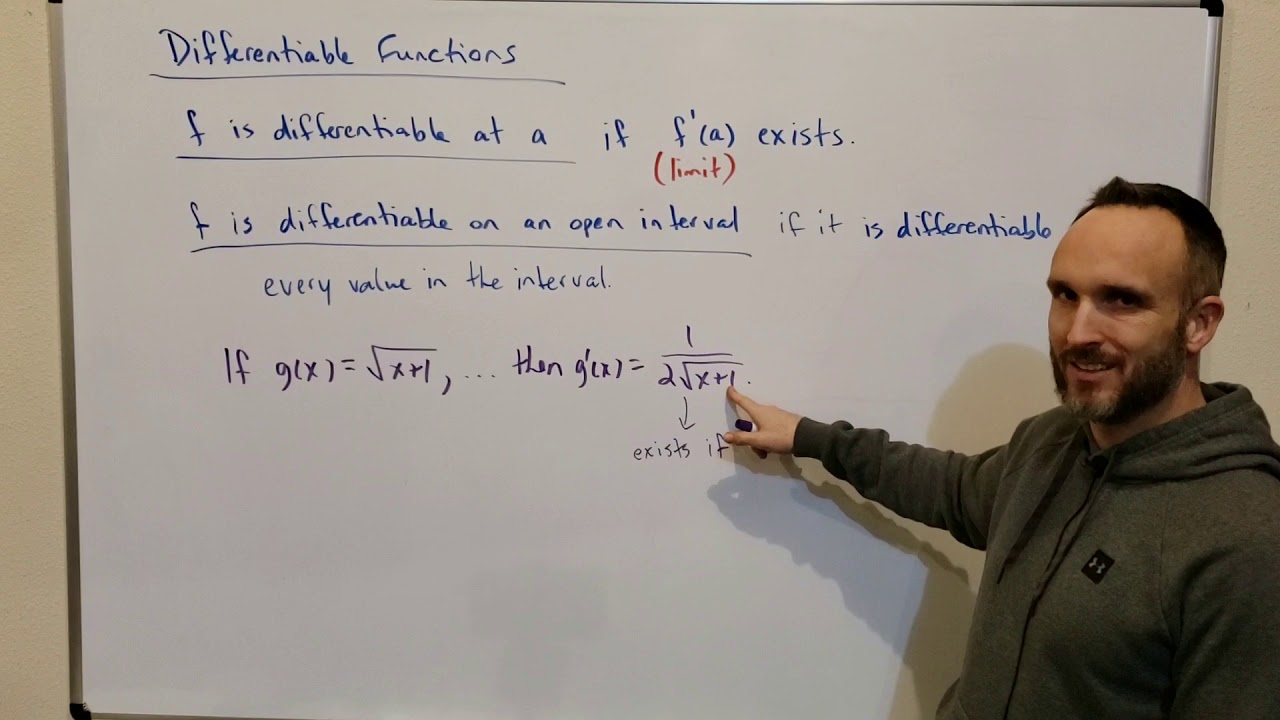 Differentiable Functions
f is differentiable at a if f'(a) exists.
(limit)
f is differentiable on an open interval if it is differentiable
every value in the interval.
If g(x) = √x+1, ... then g'(x) = 1/2√x+1.
↓
exists if